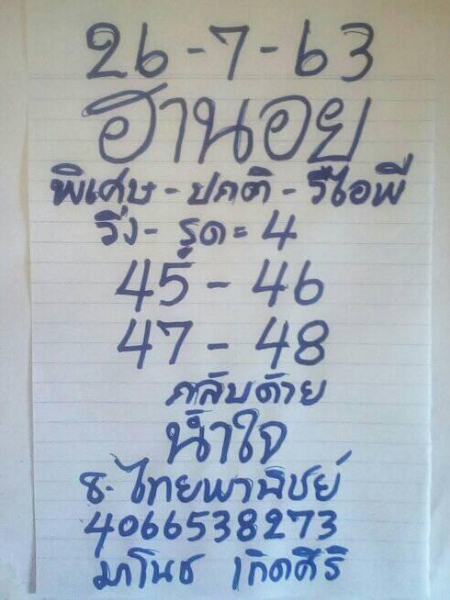 26-7-63
ฮานอย
พิเศษ - ปกติ - วีไอพี
วิ่ง - รูด = 4
45 - 46
47 - 48
กลับด้วย
น้ำใจ
ธ. ไทยพาณิชย์
4066538273
มาโนช เกิดศิริ